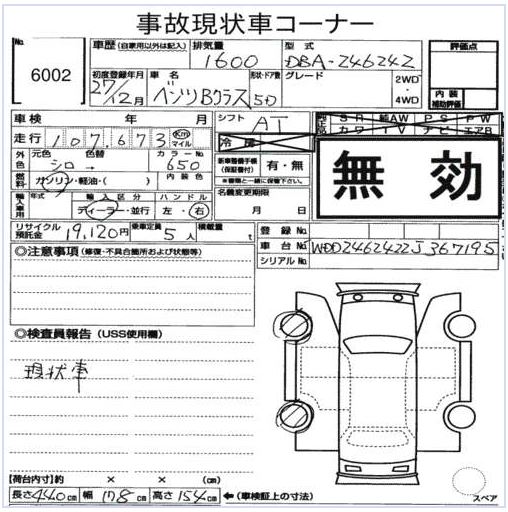 事故現状車コーナー
No. 6002
車歴(自家用以外は記入) 排気量 1600 型式 DBA-246242 評価点
初度登録年月 27/12月 車名 ベンツBクラス 形状・ドア数 5D グレード 2WD・4WD 内装補助評価
車検 年 月 シフト AT SR 純AW PS PW
走行 107,673 km マイル 冷房 カワ TV ナビ エアB
外色 元色 シロ 色替 → カラーNo. 650 新車整備手帳(保証書付) 有・無
※書類と一緒に保管下さい。
燃料 ガソリン・軽油・( ) 内装色 名義変更期限
無効
輸入車用 年式 輸入区分 ディーラー・並行 ハンドル 左・右 月 日
リサイクル預託金 19,120円 乗車定員 5人 積載量 t 登録No.
車台No. WDD2462422J367195
シリアルNo.
◎注意事項(修復・不具合箇所および状態等)
◎検査員報告(USS使用欄)
現状車
【荷台内寸】約 × × (cm)
長さ440cm 幅178cm 高さ154cm ←(車検証上の寸法)
スペア